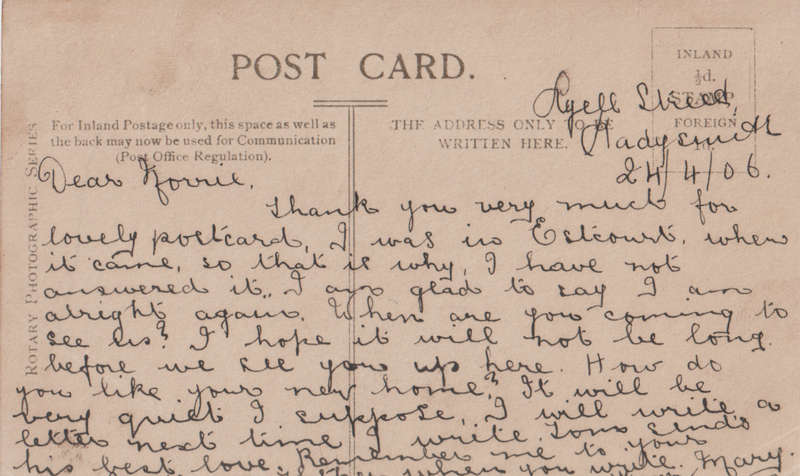 POST CARD.
INLAND
½d.
STAMP
FOREIGN
For Inland Postage only, this space as well as
the back may now be used for Communication
(Post Office Regulation).
THE ADDRESS ONLY TO BE
WRITTEN HERE.
ROTARY PHOTOGRAPHIC SERIES
Lyell Street,
Ladysmith
24/4/06.
Dear Norrie,
Thank you very much for
lovely postcard, I was in Estcourt, when
it came, so that is why, I have not
answered it. I am glad to say I am
alright again. When are you coming to
see us? I hope it will not be long
before we see you up here. How do
you like your new home? It will be
very quiet I suppose, I will write a
letter next time I write. Tom sends
his best love. Remember me to your
when you write Mary.